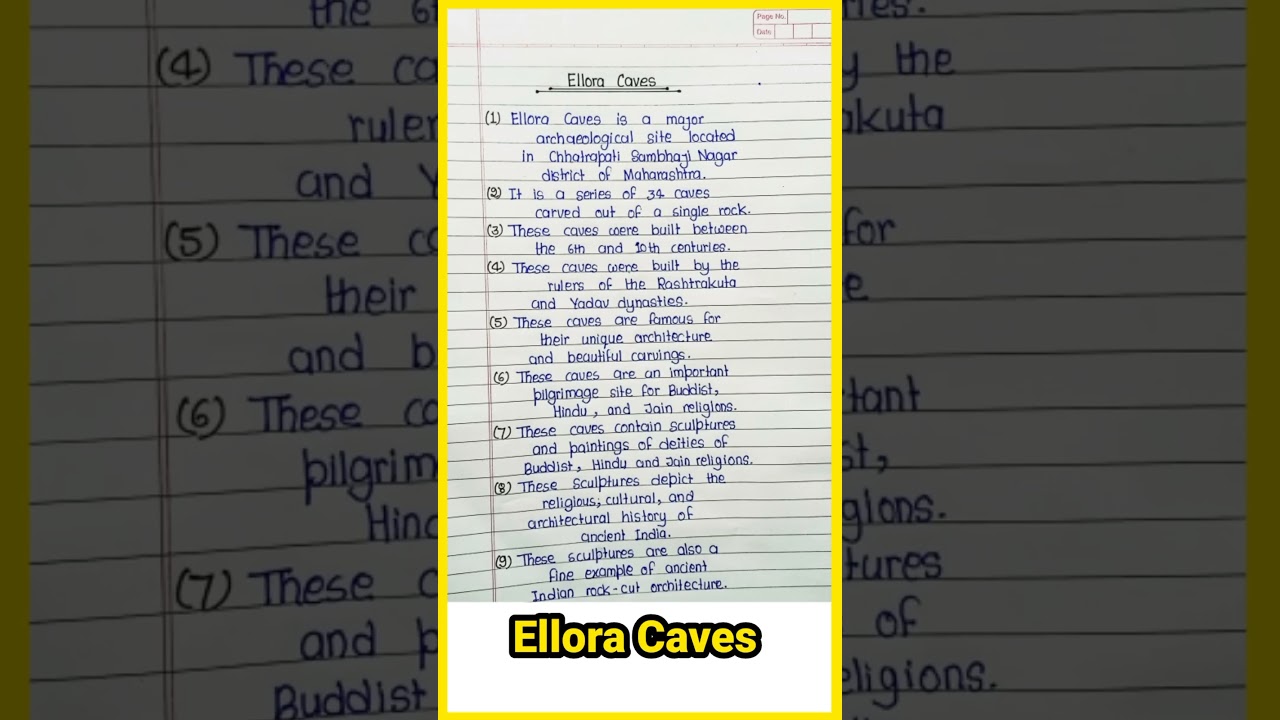 Page No.
Date
Ellora Caves
(1) Ellora Caves is a major
archaeological site located
in Chhatrapati Sambhaji Nagar
district of Maharashtra.
(2) It is a series of 34 caves
carved out of a single rock.
(3) These caves were built between
the 6th and 10th centuries.
(4) These caves were built by the
rulers of the Rashtrakuta
and Yadav dynasties.
(5) These caves are famous for
their unique architecture
and beautiful carvings.
(6) These caves are an important
pilgrimage site for Buddist,
Hindu, and Jain religions.
(7) These caves contain sculptures
and paintings of deities of
Buddist, Hindu and Jain religions.
(8) These sculptures depict the
religious, cultural, and
architectural history of
ancient India.
(9) These sculptures are also a
fine example of ancient
Indian rock-cut architecture.
Ellora Caves